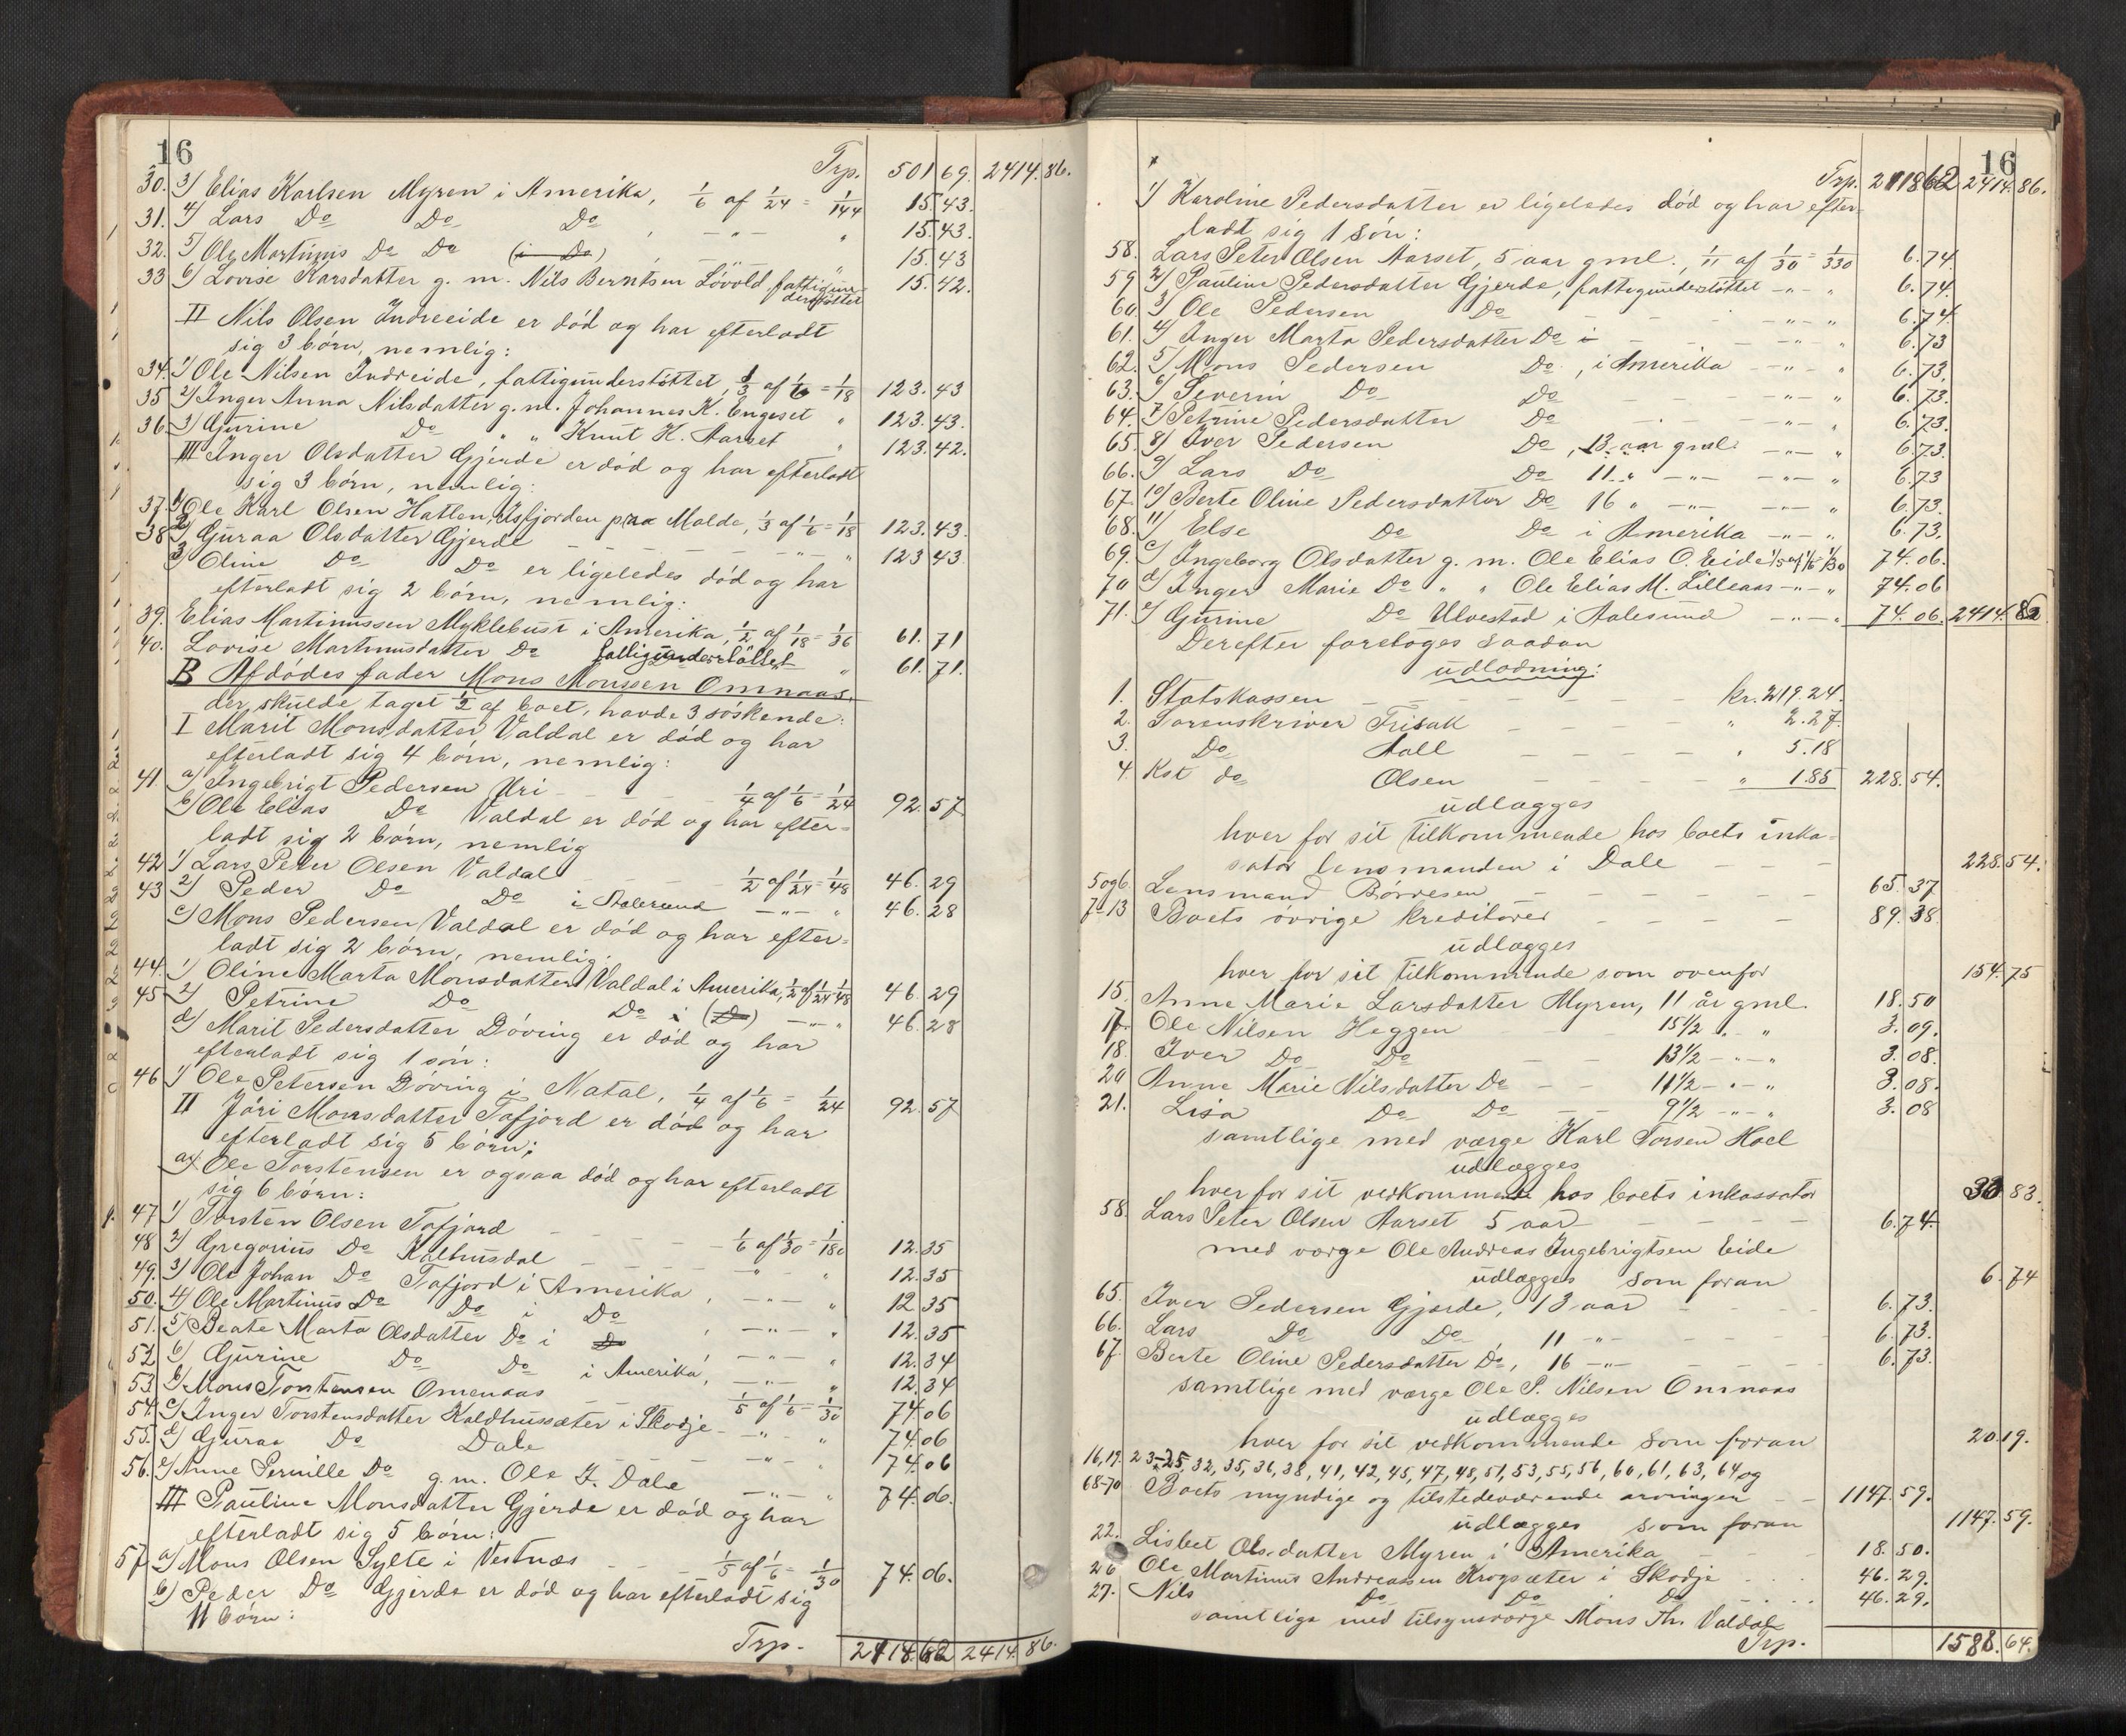 16
Trp. 501 69. 2414.86.
30. 3) Elias Karlsen Myren i Amerika, 1/6 af 1/24 = 1/144 15.43.
31. 4) Lars Do Do Do , -"- " 15.43.
32. 5) Ole Martinus Do Do (i Do) -"- " 15.43
33 6) Lovise Karsdatter g. m. Nils Berntsen Lövold fattigunderstöttet " 15.42.
II Nils Olsen Indreeide er död og har efterladt
sig 3 börn, nemlig:
34. 1) Ole Nilsen Indreide, fattigunderstöttet, 1/3 af 1/6 = 1/18 123.43
35 2) Inger Anna Nilsdatter g. m. Johannes K. Engeset " 123.43.
36. 3) Gurine Do " " Knut K. Aarset " 123.42.
III Inger Olsdatter Gjerde er död og har efterladt
sig 3 börn, nemlig:
37. 1) Ole Karl Olsen Hatlen, Isfjorden paa Molde, 1/3 af 1/6 = 1/18 123.43.
38 2) Guraa Olsdatter Gjerde - - - - -"- " 123 43
3) Oline Do Do er ligeledes död og har
efterladt sig 2 börn, nemlig:
39. Elias Martinussen Myklebust i Amerika, 1/2 af 1/18 = 1/36 61.71
40. Lovise Martinusdatter Do fattigunderstöttet " 61.71.
B Afdödes fader Mons Monssen Omnaas,
der skulde taget 1/2 af boet, havde 3 söskende:
I Marit Monsdatter Valdal er död og har
efterladt sig 4 börn, nemlig:
41 a) Ingebrigt Pedersen Uri - - - 1/4 af 1/6 = 1/24 92.57
b) Ole Elias Do Valdal er död og har efter-
ladt sig 2 börn, nemlig
42 1) Lars Peter Olsen Valdal - - 1/2 af 1/24 = 1/48 46.29
43 2) Peder Do Do i Aalesund -"- " 46.28
c) Mons Pedersen Valdal er död og har efter-
ladt sig 2 börn, nemlig:
44. 1) Oline Marta Monsdatter Valdal i Amerika, 1/2 af 1/24 = 1/48 46.29
45 2) Petrine Do Do i (Do) -"- " 46.28
d) Marit Pedersdatter Döving er död og har
efterladt sig 1 sön:
46 1) Ole Petersen Döving i Natal, 1/4 af 1/6 = 1/24 92.57
II Jöri Monsdatter Tafjord er död og har
efterladt sig 5 börn:
a) Ole Torstensen er ogsaa död og har efterladt
sig 6 börn:
47 1) Torsten Olsen Tafjord - - - 1/6 af 1/30 = 1/180 12.35
48 2) Gregorius Do Kalhusdal - - -"- " 12.35
49. 3) Ole Johan Do Tafjord i Amerika , -"- " 12.35
50. 4) Ole Martinus Do Do i Do , -"- " 12.35
51. 5) Beate Marta Olsdatter Do i Do -"- " 12.34
52 6) Gurine Do Do i Amerika, -"- " 12.34
53. b) Mons Torstensen Omenaas - - 1/5 af 1/6 = 1/30 74.06
54. c) Inger Torstensdatter Kaldhussæter i Skodje -"- " 74.06
55. d) Guraa Do Dale -"- " 74.06
56. e) Anne Pernille Do g. m. Ole J. Dale -"- " 74.06.
III Pauline Monsdatter Gjerde er död og har
efterladt sig 5 börn:
57 a) Mons Olsen Sylte i Vestnæs - - 1/5 af 1/6 = 1/30 74.06.
b) Peder Do Gjerde er död og har efterladt sig
11 börn:
Trp. 2118.62 2414.86.
16
Trp. 2118 62 2414.86.
1) Karoline Pedersdatter er ligeledes död og har efter-
ladt sig 1 sön:
58. Lars Peter Olsen Aarset, 5 aar gml., 1/11 af 1/30 = 1/330 6.74.
59 2) Pauline Pedersdatter Gjerde, fattigunderstöttet -"- " 6.74.
60. 3) Ole Pedersen Do - - - -"- " 6.74.
61. 4) Inger Marta Pedersdatter Do i - - -"- " 6.73
62. 5) Mons Pedersen Do , i Amerika -"- " 6.73.
63. 6) Severin Do Do - - -"- " 6.73.
64. 7) Petrine Pedersdatter Do - - -"- " 6.73.
65. 8) Iver Pedersen Do , 13 aar gml. -"- " 6.73.
66. 9) Lars Do Do 11 " -"- -"- " 6.73
67. 10) Berte Oline Pedersdatter Do 16 " -"- -"- " 6.73.
68. 11) Else Do Do i Amerika -"- " 6.73.
69. c) Ingeborg Olsdatter g. m. Ole Elias O. Eide 1/5 af 1/6 = 1/30 74.06.
70 d) Inger Marie Do " " Ole Elias M. Lilleaas -"- " 74.06
71. e) Gurine Do Ulvestad i Aalesund -"- " 74.06. 2414.86
Derefter foretoges saadan
udlodning:
1. Statskassen - - - - kr. 219.24.
2. Sorenskriver Frisak - - - " 2.27.
3. Do Aall - - - - " 5.18
4. Kst do Olsen - - - " 1.85 228.54.
udlægges
hver for sit tilkommende hos boets inka-
sator lensmanden i Dale - - 228.54.
5 og 6. Lensmand Börresen - - - - 65.37
7-13 Boets övrige kreditorer - - - - 89.38.
udlægges
hver for sit tilkommende som ovenfor 154.75
15. Anne Marie Larsdatter Myren, 11 år gml. 18.50
17. Ole Nilsen Heggen - - 15 1/2 " " 3.09.
18. Iver Do Do - - 13 1/2 -"- " 3.08.
20 Anne Marie Nilsdatter Do - - 11 1/2 -"- " 3.08.
21. Lisa Do Do - - 9 1/2 -"- " 3.08
samtlige med værge Karl Torsen Hoel
udlægges
hver for sit vedkommende hos boets inkassator 30 83.
58. Lars Peter Olsen Aarset 5 aar - - - 6.74.
med værge Ole Andreas Ingebrigtsen Eide
udlægges som foran 6.74
65. Iver Pedersen Gjærde, 13 aar - - - 6.73.
66. Lars Do Do , 11 -"- - - - 6.73.
67. Berte Oline Pedersdatter Do, 16 -"- - - - 6.73.
samtlige med værge Ole P. Nilsen Omnaas
udlægges
hver for sit vedkommende som foran 20.19.
16, 19. 23-25, 32, 35, 36, 38, 41, 42, 45, 47, 48, 51, 53, 55, 56, 60, 61, 63, 64 og
68-70 Boets myndige og tilstedeværende arvinger - - 1147.59.
udlægges som foran 1147.59.
22. Lisbet Olsdatter Myren i Amerika - - 18.50.
26 Ole Martinus Andreassen Krogsæter i Skodje 46.29.
27. Nils Do Do Do 46.29.
samtlige med tilsynsværge Mons Th. Valdal
Trp. 1588.64.